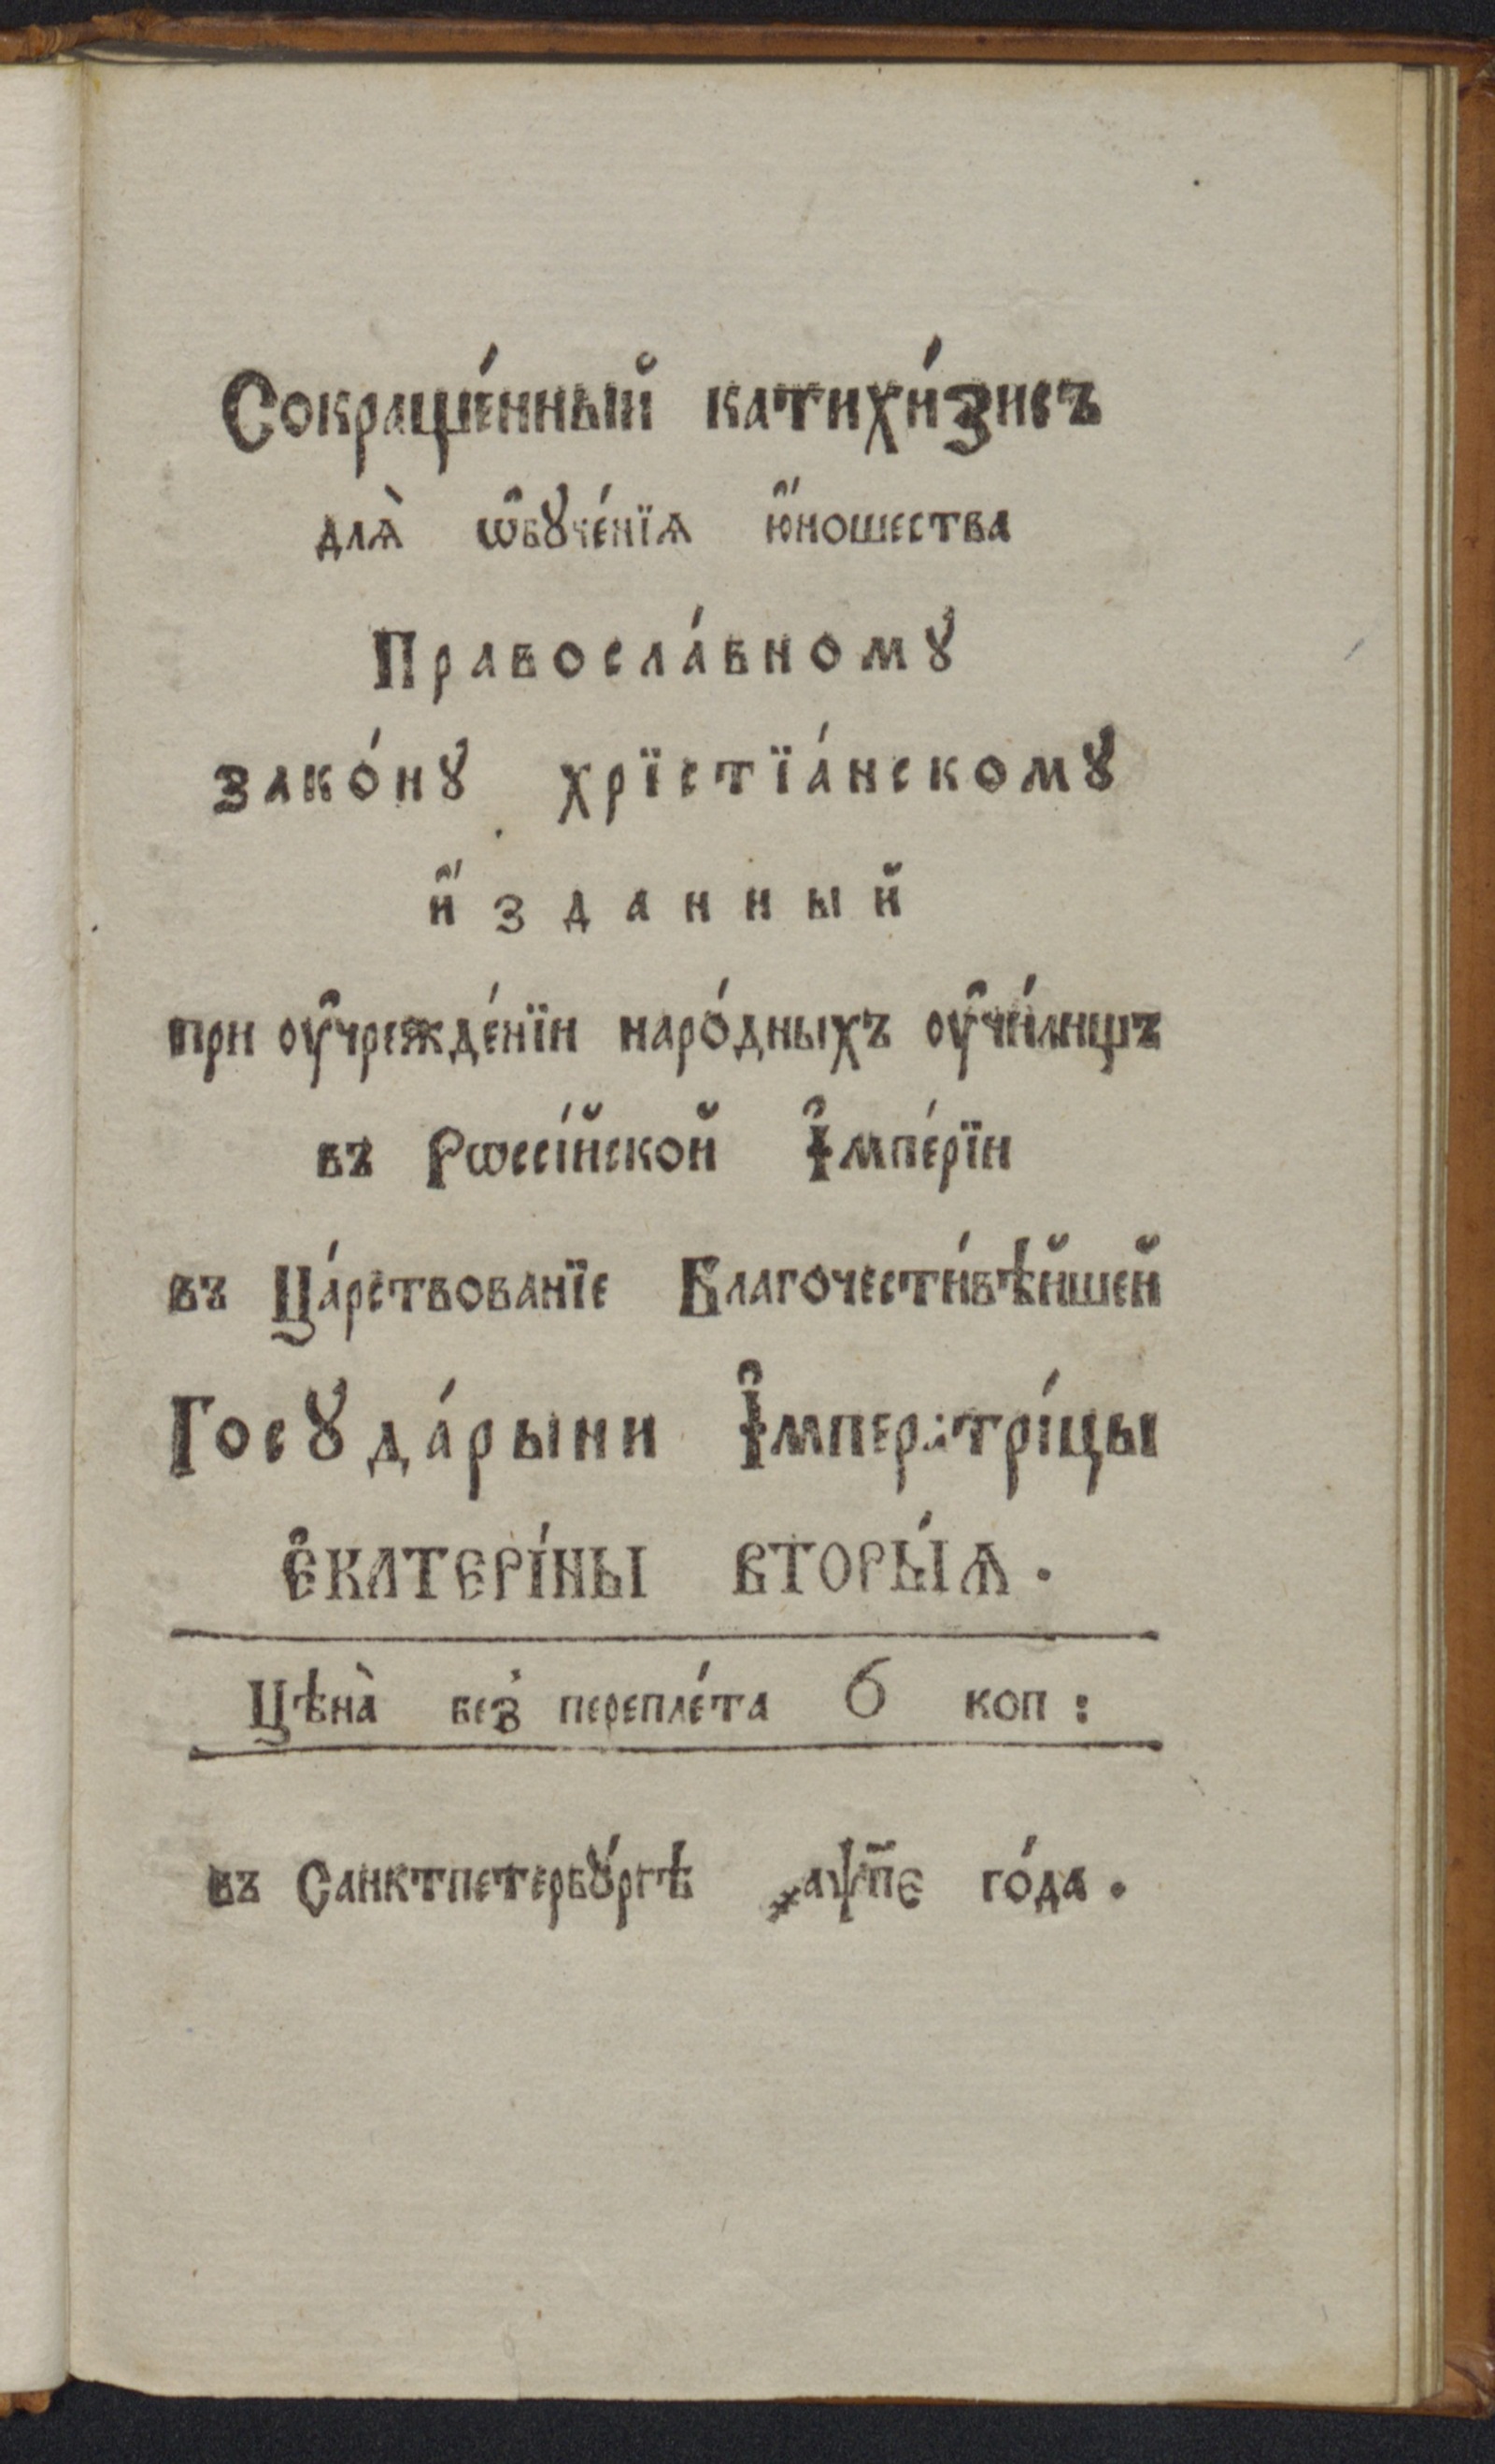 Сокраще́нный катихи́зисъ
для̀ ѡ҆бꙋче́нїѧ ю҆́ношества
Правосла́вномꙋ
зако́нꙋ хрїстїа́нскомꙋ
и҆́зданный
при оу҆чрежде́нїи наро́дныхъ оу҆чи́лищъ
въ Рѡссі́йской І҆мпе́рїи
въ Ца́рствованїе Благочести́вѣйшей
Госꙋда́рыни І҆мператрі́цы
Є҆КАТЕРІ́НЫ ВТОРЫ́Ѧ.
Цѣна̀ беꙁ̾ перепле́та 6 коп:
въ Санктпетербꙋ́ргѣ ҂аѱп҃є го́да.